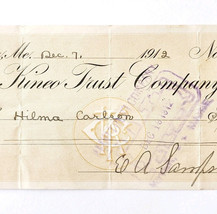 , Me. Dec. 7, 1912 No
Kineo Trust Company
Hilma Carlson
E A Samp